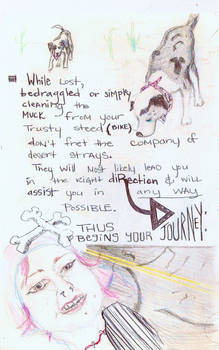 While Lost,
bedraggled or simply
cleaning the
MUCK from your
Trusty steed (BIKE)
don't fret the company of
desert strays.
They will Most likely lead you
in the Right diRection & will
assist you in any way
Possible.
THUS
BEGINS YOUR JOURNEY: